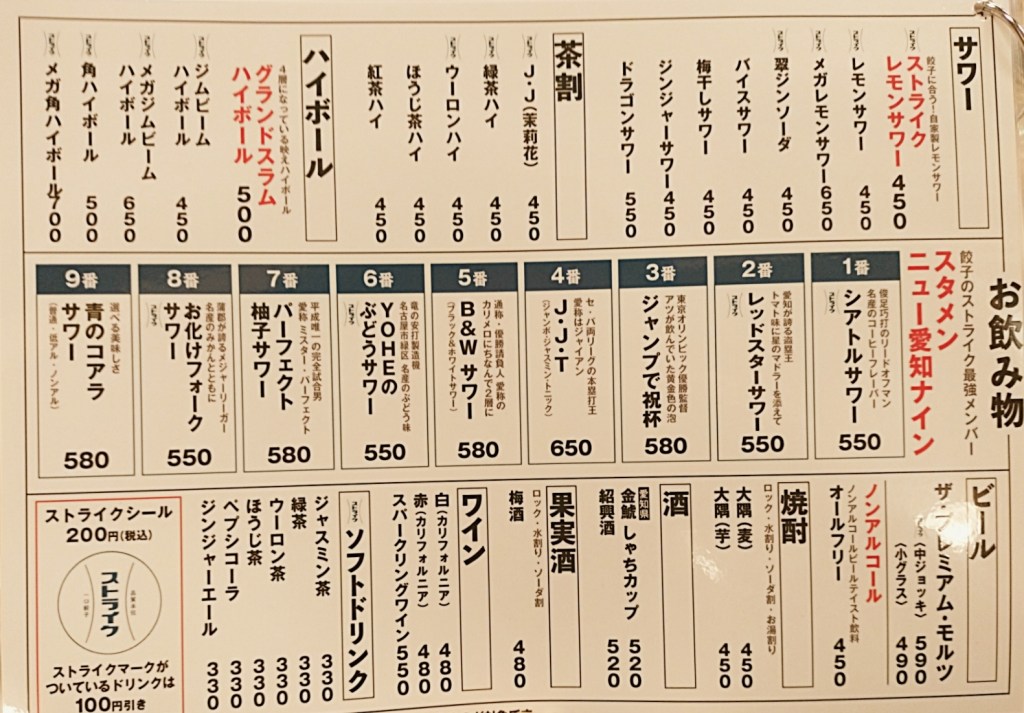 お飲み物
サワー
餃子に合う!自家製レモンサワー
ストライク
レモンサワー 450
レモンサワー 450
メガレモンサワー 650
翠ジンソーダ 450
バイスサワー 450
梅干しサワー 450
ジンジャーサワー 450
ドラゴンサワー 550
茶割
J・J(茉莉花) 450
緑茶ハイ 450
ウーロンハイ 450
ほうじ茶ハイ 450
紅茶ハイ 450
ハイボール
4層になっている映えハイボール
グランドスラム
ハイボール 500
ジムビーム
ハイボール 450
メガジムビーム
ハイボール 650
角ハイボール 500
メガ角ハイボール 700
餃子のストライク最強メンバー
スタメン
ニュー愛知ナイン
1番
俊足巧打のリードオフマン
名産のコーヒーフレーバー
シアトルサワー
550
2番
愛知が誇る盗塁王
トマト味に星のマドラーを添えて
レッドスターサワー
550
3番
東京オリンピック優勝監督
アツが飲んでいた黄金色の泡
ジャンプで祝杯
580
4番
セ・パ両リーグの本塁打王
愛称はジャイアン
J.J.T
(ジャンボ・ジャスミントニック)
650
5番
通称・優勝請負人 愛称の
カリメロにちなんで2層に
B&Wサワー
(ブラック&ホワイトサワー)
580
6番
竜の安打製造機
名古屋市緑区 名産のぶどう味
YOHEの
ぶどうサワー
550
7番
平成唯一の完全試合男
愛称 ミスター・パーフェクト
パーフェクト
柚子サワー
580
8番
蒲郡が誇るメジャーリーガー
名産のみかんとともに
お化けフォーク
サワー
550
9番
選べる美味しさ
青のコアラ
サワー
(普通・低アル・ノンアル)
580
ビール
ザ・プレミアム・モルツ
(中ジョッキ) 590
(小グラス) 490
ノンアルコール
ノンアルコールビールテイスト飲料
オールフリー 450
焼酎
ロック・水割り・ソーダ割・お湯割り
大隅(麦) 450
大隅(芋) 450
酒
愛知県
金鯱 しゃちカップ 520
紹興酒 520
果実酒
ロック・水割り・ソーダ割
梅酒 480
ワイン
白(カリフォルニア) 480
赤(カリフォルニア) 480
スパークリングワイン 550
ソフトドリンク
ジャスミン茶 330
緑茶 330
ウーロン茶 330
ほうじ茶 330
ペプシコーラ 330
ジンジャーエール 330
ストライクシール
200円(税込)
ストライク
ストライクマークが
ついているドリンクは
100円引き